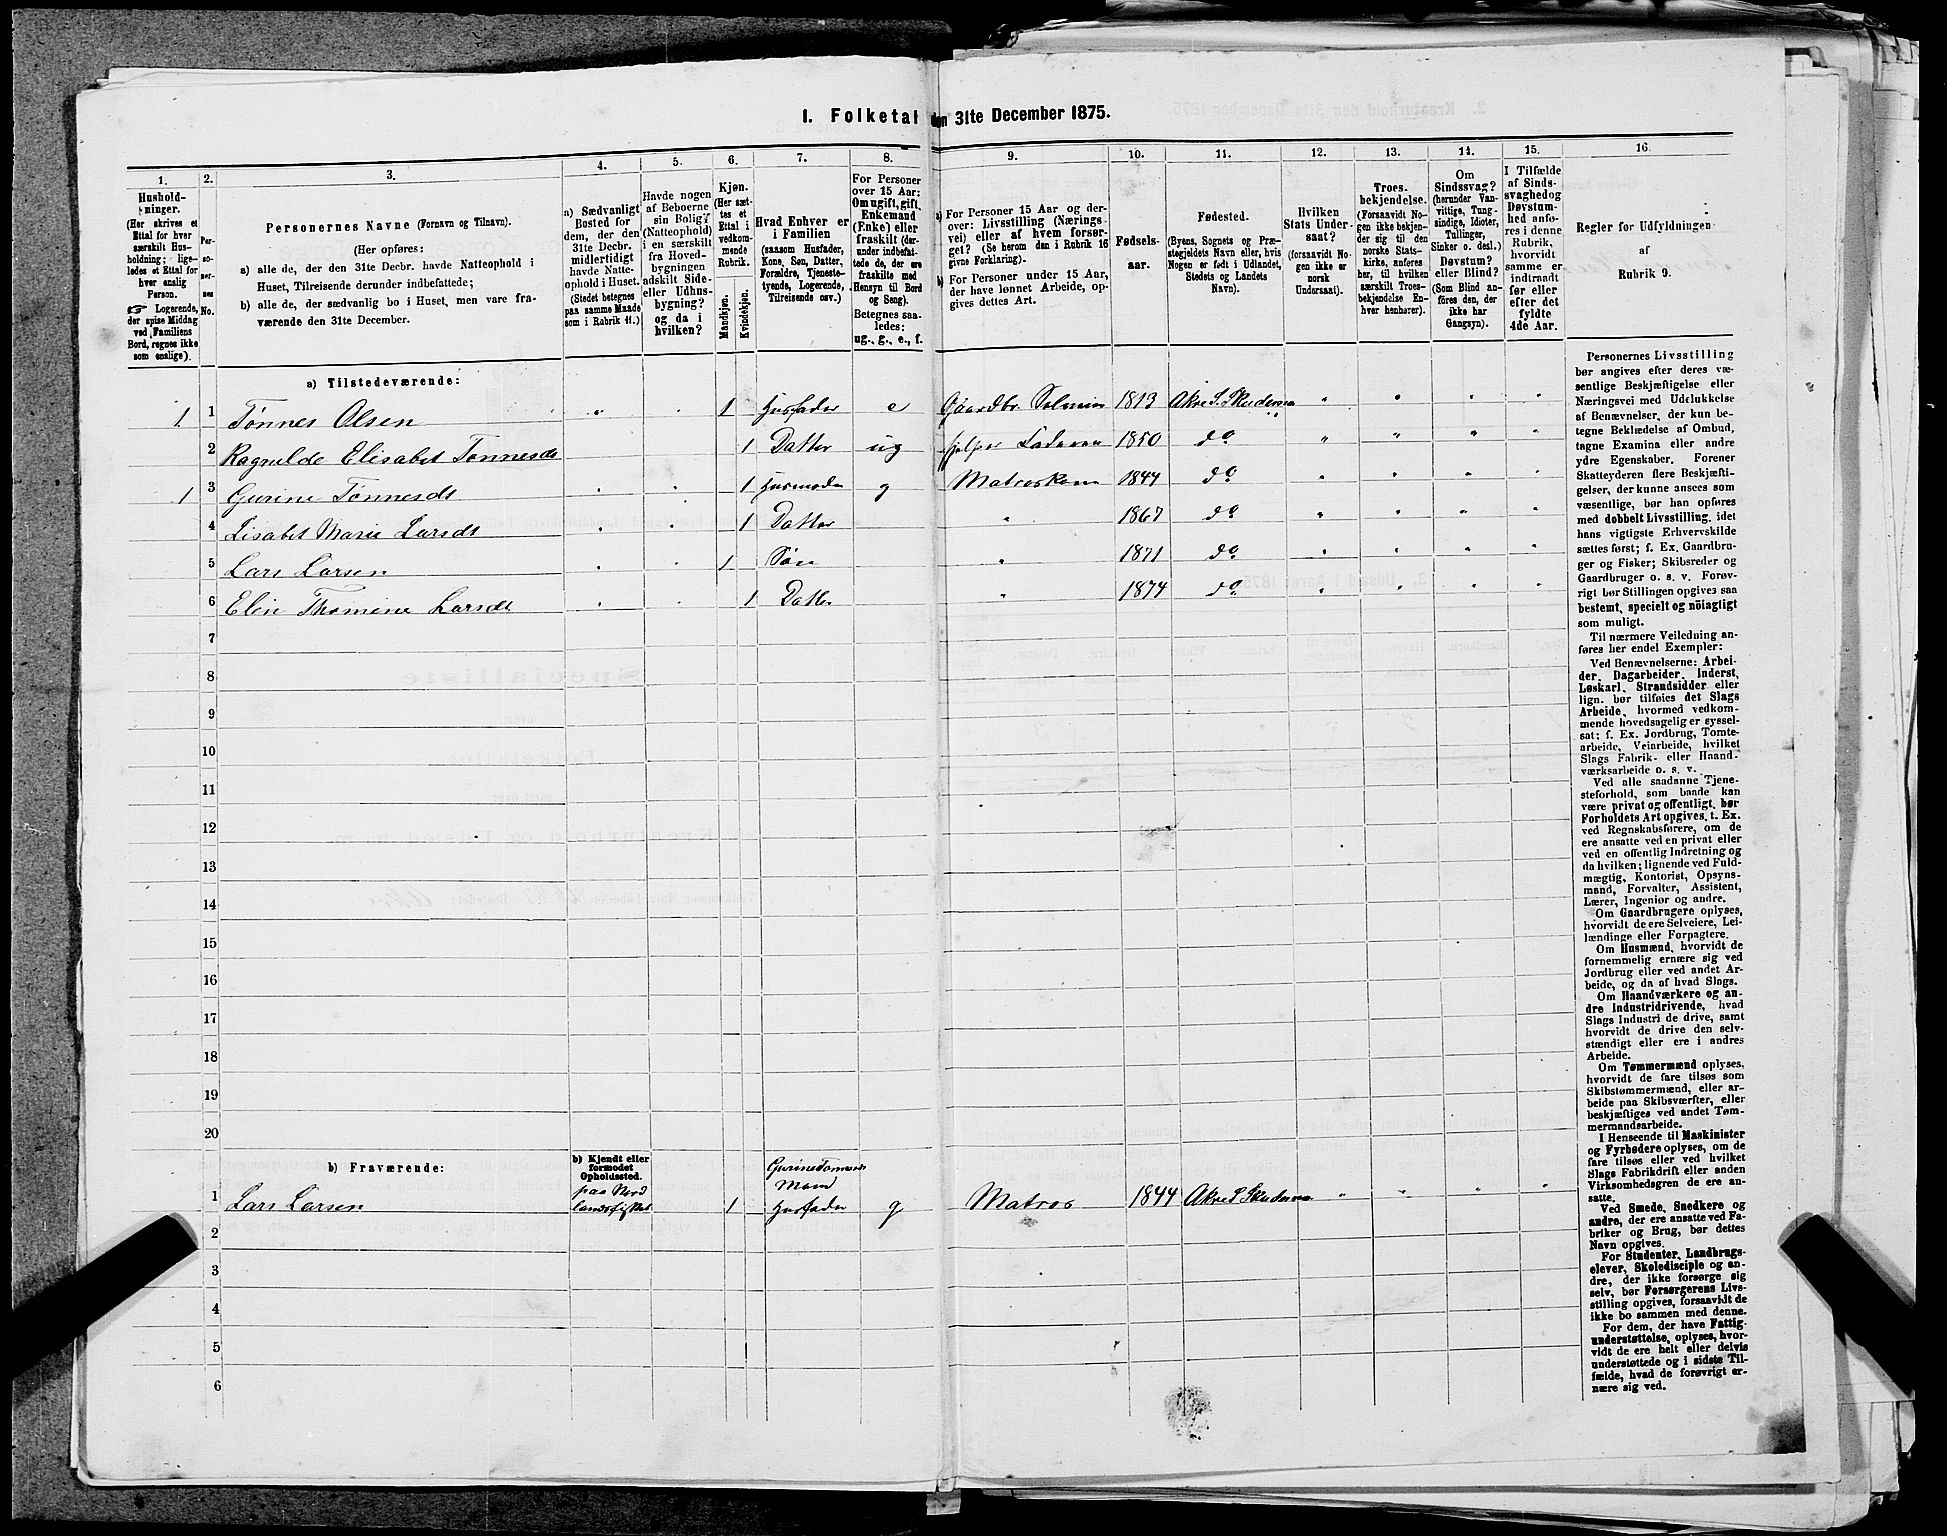 I. Folketal den 31te December 1875.
1.
2.
3.
4.
5.
6.
7.
8.
9.
10.
11.
12.
13.
14.
15.
16.
Hushold-
ninger.
(Her skrives et
Ettal for hver
særskilt Hus-
holdning; lige-
ledes et Ettal for
hver enslig
Person.
☞ Logerende,
der spise Middag
ved Familiens
Bord, regnes ikke
som enslige).
Per-
so-
ner-
nes
No.
Personernes Navne (Fornavn og Tilnavn).
(Her opføres:
a) alle de, der den 31te Decbr. havde Natteophold i
Huset, Tilreisende derunder indbefattede;
b) alle de, der sædvanlig bo i Huset, men vare fra-
værende den 31te December.
a) Sædvanligt
Bosted for
dem, der den
31te Decbr.
midlertidigt
havde Natte-
ophold i Huset.
(Stedet betegnes
paa samme Maade
som i Rubrik 11.)
Havde nogen
af Beboerne
sin Bolig
(Natteophold)
i en særskilt
fra Hoved-
bygningen
adskilt Side-
eller Udhus-
bygning?
og da i
hvilken?
Kjøn.
(Her sæt-
tes et
Ettal i
vedkom-
mende
Rubrik.
Mandkjøn.
Kvindekjøn.
Hvad Enhver er
i Familien
(saasom Husfader,
Kone, Søn, Datter,
Forældre, Tjeneste-
tyende, Logerende,
Tilreisende osv.)
For Personer
over 15 Aar:
Om ugift, gift,
Enkemand
(Enke) eller
fraskilt (der-
under indbefat-
tede de, der ere
fraskilte med
Hensyn til Bord
og Seng).
Betegnes saa-
ledes:
ug., g., e., f.
a) For Personer 15 Aar og der-
over: Livsstilling (Nærings-
vei) eller af hvem forsør-
get? (Se herom den i Rubrik 16
givne Forklaring).
b) For Personer under 15 Aar,
der have lønnet Arbeide, op-
gives dettes Art.
Fødsels-
aar.
Fødested.
(Byens, Sognets og Præ-
stegjeldets Navn eller, hvis
Nogen er født i Udlandet,
Stedets og Landets
Navn).
Hvilken
Stats Under-
saat?
(forsaavidt No-
gen ikke er
norsk
Undersaat).
Troes-
bekjendelse.
(Forsaavidt No-
gen ikke bekjen-
der sig til den
norske Stats-
kirke, anføres
her, til hvilken
særskilt Troes-
bekjendelse En-
hver henhører).
Om
Sindssvag?
(herunder Van-
vittige, Tung-
sindige, Idioter,
Tullinger,
Sinker o. desl.)
Døvstum?
eller Blind?
(Som Blind an-
føres den, der
ikke har
Gangsyn).
I Tilfælde
af Sinds-
svaghedog
Døvstum-
hed anfø-
res i denne
Rubrik,
hvorvidt
samme er
indtraadt
før eller
efter det
fyldte
4de Aar.
Regler for Udfyldningen
af
Rubrik 9.
a) Tilstedeværende:
1 1 Tønnes Olsen " " 1 Husfader e Gaardbr. Selveier 1813 Akre S. Skudenes " " " "
2 Ragnilde Elisabet Tønnesdt 1 Datter ug hjelper Faderen 1850 do " " " "
1 3 Gurine Tønnesdt " " 1 Husmoder g Matroskone 1844 do " " " "
4 Lisabet Marie Larsdt " " 1 Datter " 1867 do " " " "
5 Lars Larsen " " 1 Søn " 1871 do " " " "
6 Elin Thomine Larsdt " " 1 Datter " 1874 do " " " "
7
8
9
10
11
12
13
14
15
16
17
18
19
20
b) Fraværende:
b) Kjendt eller
formodet
Opholdssted.
Gurine Tønnesdt
Mand
1 Lars Larsen paa Nord
landsfisket 1 Husfader g Matros 1844 Akre S Skudenes " " " "
2
3
4
5
6
Personernes Livsstilling
bør angives efter deres væ-
sentlige Beskjæftigelse eller
Næringsvei med Udelukkelse
af Benævnelser, der kun be-
tegne Beklædelse af Ombud,
tagne Examina eller andre
ydre Egenskaber. Forener
Skatteyderen flere Beskjæfti-
gelser, der kunne ansees som
væsentlige, bør han opføres
med dobbelt Livsstilling, idet
hans vigtigste Erhvervskilde
sættes først; f. Ex. Gaardbru-
ger og Fisker; Skibsreder og
Gaardbruger o. s. v. Forøv-
rigt bør Stillingen opgives saa
bestemt, specielt og nöiagtigt
som muligt.
Til nærmere Veiledning an-
føres her endel Exempler:
Ved Benævnelserne: Arbei-
der, Dagarbeider, Inderst,
Løskarl, Strandsidder eller
lign. bør tilføies det Slags
Arbeide, hvormed vedkom-
mende hovedsagelig er syssel-
sat; f. Ex. Jordbrug, Tomte-
arbeide, Veiarbeide, hvilket
Slags Fabrik- eller Haand-
værksarbeide o. s. v.
Ved alle saadanne Tjene-
steforhold, som baade kan
være privat og offentligt, bør
Forholdets Art opgives, t. Ex.
ved Regnskabsførere, om de
ere ansatte ved en privat eller
ved en offentlig Indretning og
da hvilken; lignende ved Fuld-
mægtig, Kontorist, Opsyns-
mand, Forvalter, Assistent,
Lærer, Ingeniør og andre.
Om Gaardbrugere oplyses,
hvorvidt de ere Selveiere, Lei-
lændinge eller Forpagtere.
Om Husmænd, hvorvidt de
fornemmelig ernære sig ved
Jordbrug eller ved andet Ar-
beide, og da af hvad Slags.
Om Haandværkere og an-
dre Industridrivende, hvad
Slags Industri de drive, samt
hvorvidt de drive den selv-
stændigt eller ere i andres
Arbeide.
Om Tømmermænd oplyses,
hvorvidt de fare tilsøs som
Skibstømmermænd, eller ar-
beide paa Skibsværfter, eller
beskjæftiges ved andet Tøm-
mermandsarbeide.
I Henseende til Maskinister
og Fyrbødere oplyses, om de
fare tilsøs eller ved hvilket
Slags Fabrikdrift eller anden
Virksomhedsgren de ere an-
satte.
Ved Smede, Snedkere og
andre, der ere ansatte ved Fa-
briker og Brug, bør dettes
Navn opgives.
For Studenter, Landbrugs-
elever, Skoledisciple og an-
dre, der ikke forsørge sig
selv, bør Forsørgerens Livs-
stilling opgives, forsaavidt de
ikke bo sammen med denne.
For dem, der have Fattig-
understøttelse, oplyses, hvor-
vidt de ere helt eller delvis
understøttede og i sidste Til-
fælde, hvad de forøvrigt er-
nære sig ved.